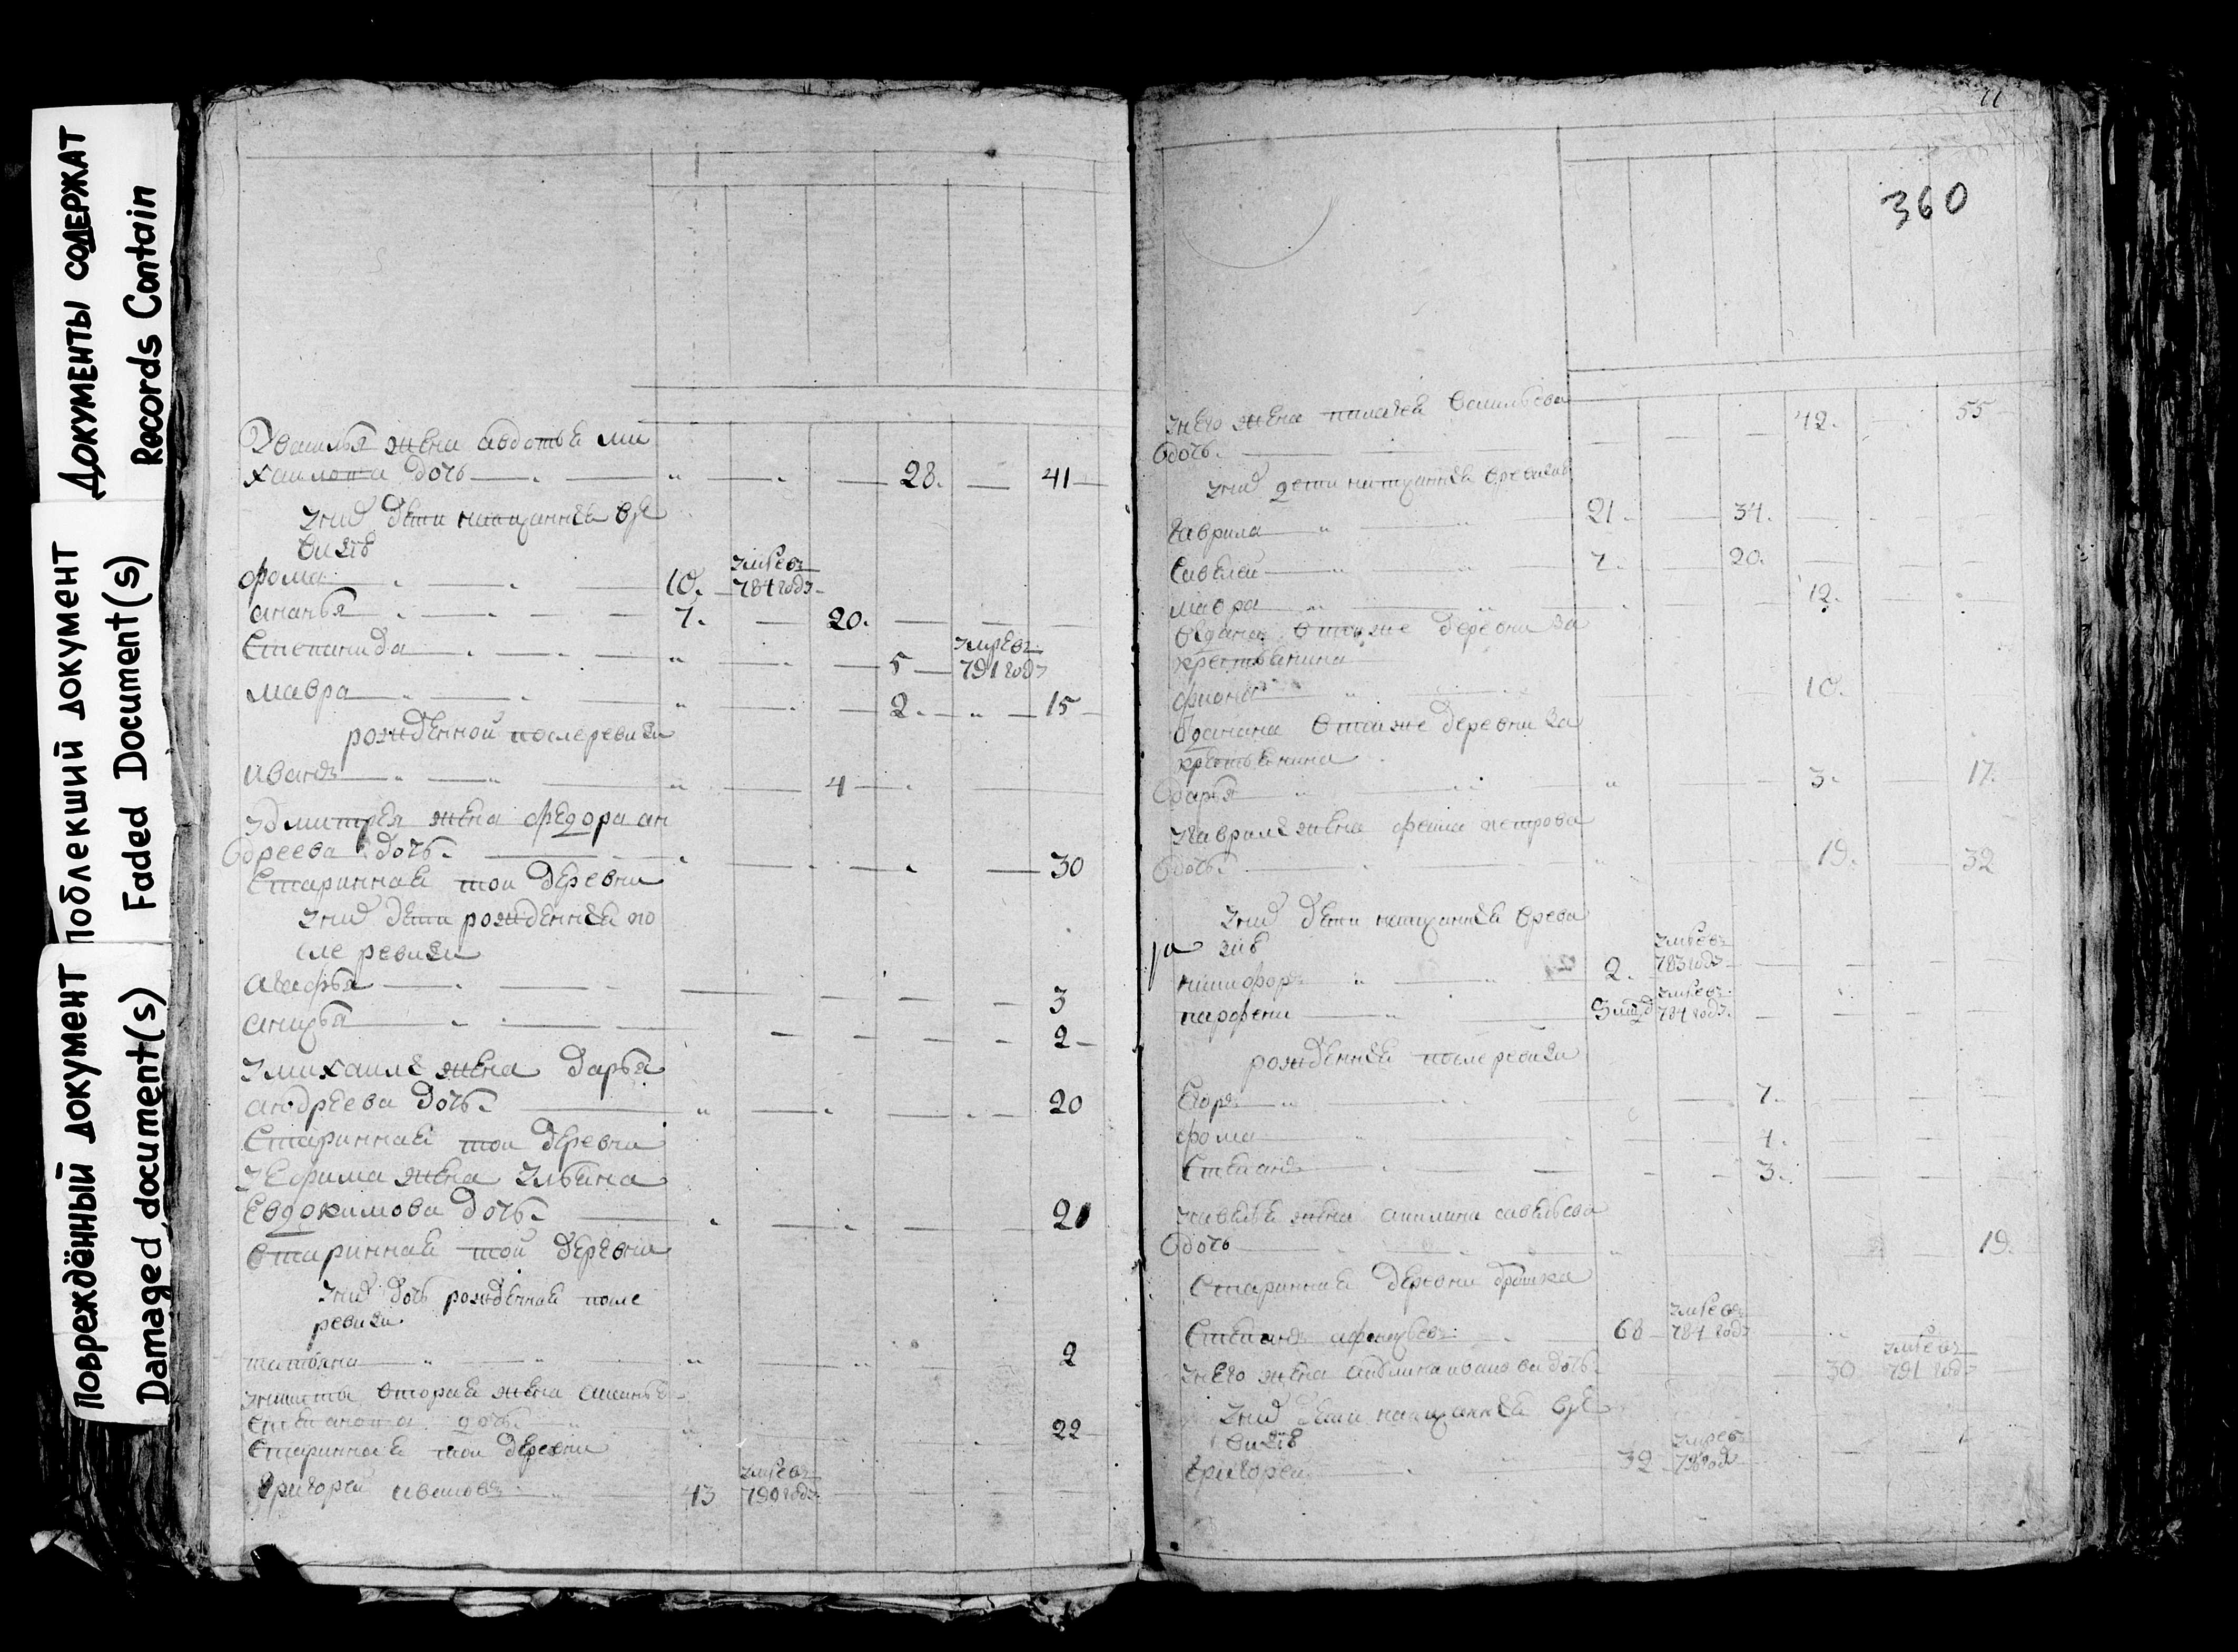 Документы содержат
Records Contain
Поблекший документ
Faded Document(s)
Повреждённый документ
Damaged document(s)
жена авдотья ми
хаилова дочь 28. 41
уних дети написанныя вре
визiв
фома 10. умре въ
784 годъ
ананья 7. 20.
Степанида 5 умре въ
791 годъ
мавра 2. 15
рожденной после ревизи
иванъ 4
удмитрея жена федора ан
дреева дочь. 30
Стариннай тои деревни
уних дети рожденныя по
сле ревизи
агафья 3
анисья 2
умихаилы жена дарья
андреева дочь. 20
Стариннай тои деревни
уефима жена
Евдокимова дочь. 21
Стариннай той деревни
уних дочь рожденнай после
ревизи.
татьяна 2
вторая жена
Степанова дочь 22
Стариннай тои деревни
Григорей ивановъ 43 умре въ
790 годъ
11
360
унего жена пилагея васильева
дочь. 42. 55
уних дети написанныя вревизiв
гаврила 21. 34.
Савелей 7. 20.
мавра 12.
выданна втоиже деревни за
крестьянина
10.
вданана втоиже деревни за
крестьянина
дарья 3. 17.
угаврилы жена петрова
дочь. 19. 32
уних дети написанныя вреви
зiв
никифоръ 2. умре въ
783 годъ
парфени умре въ
784 годъ
рожденныя после ревизи
Егоръ 7.
фома 4.
Степанъ 3.
жена акилина савельева
дочь 19.
Стариннай деревни
Степанъ 68 умре въ
784 годъ
унего жена дочь. 30 умре въ
791 годъ
уних дети написанныя вре
визiв
Григорей 32 умре въ